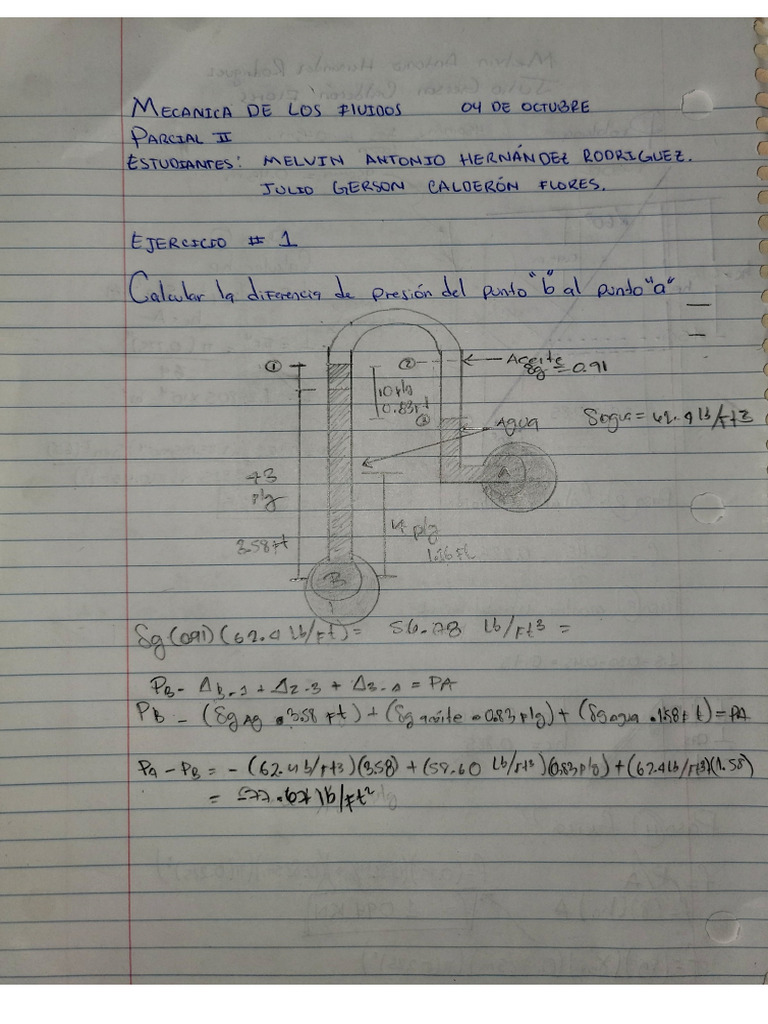 MECANICA DE LOS FLUIDOS 04 DE OCTUBRE
PARCIAL II
ESTUDIANTES: MELVIN ANTONIO HERNÁNDEZ RODRIGUEZ.
JULIO GERSON CALDERÓN FLORES.
EJERCICIO # 1
Calcular la diferencia de presión del punto "b" al punto "a"
① ② Aceite
Sg = 0.91
10 plg
0.83 ft
③ Agua δagua = 62.4 lb/ft3
A
43
plg
3.58 ft
plg
B
δg (0.91) (62.4 lb/ft) = 56.78 lb/ft³ =
PB - ΔB-1 + Δ2-3 + Δ3-A = PA
PB - (δg Ag • 3.58 ft) + (δg aceite • 0.83 plg) + (δg agua • 1.58 ft) = PA
PA - PB = -(62.4 lb/ft3)(3.58) + (58.60 lb/ft3)(0.83 plg) + (62.4 lb/ft3)(1.58)
= -77.67 lb/ft²